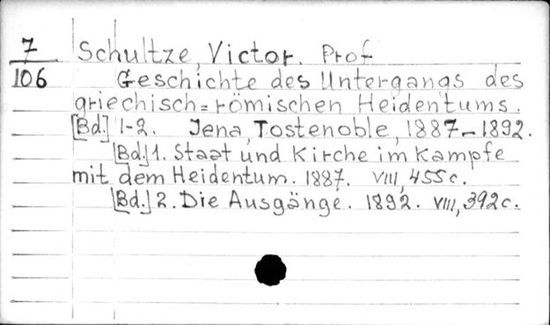 7 Schultze, Victor. Prof
106 Geschichte des Untergangs des
griechisch=römischen Heidentums.
[Bd.] 1-2. Jena, Tostenoble, 1887-1892.
[Bd.] 1. Staat und Kirche im Kampfe
mit dem Heidentum. 1887. VIII, 455 c.
[Bd.] 2. Die Ausgänge. 1892. VIII, 392 c.